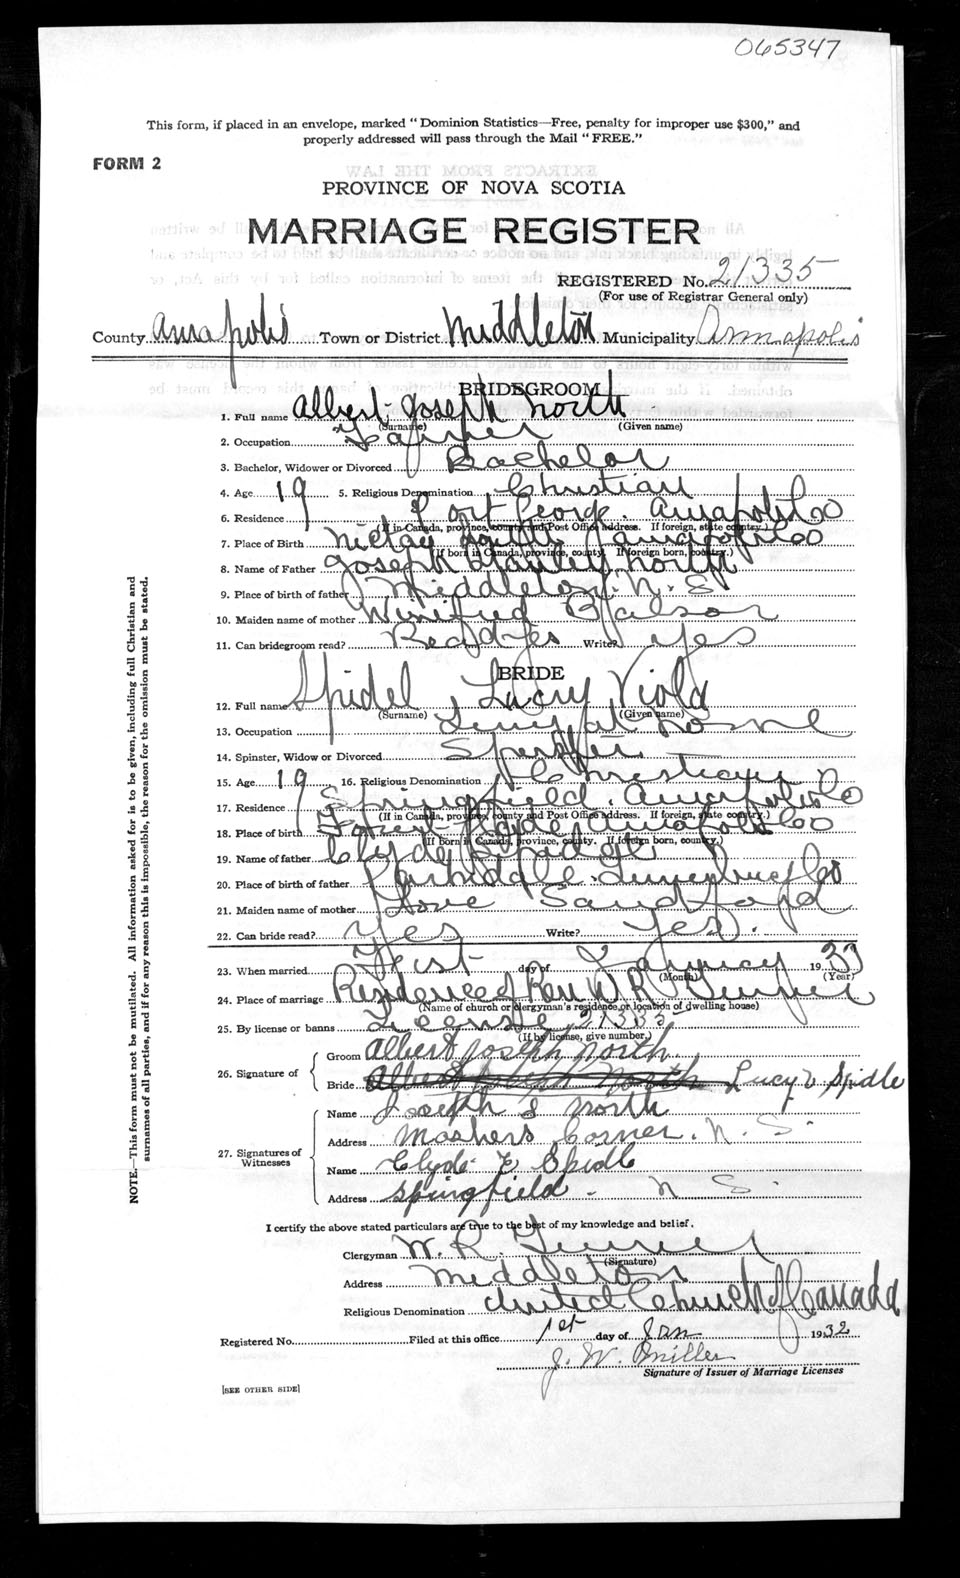 065347
This form, if placed in an envelope, marked "Dominion Statistics—Free, penalty for improper use $300," and
properly addressed will pass through the Mail "FREE."
FORM 2
PROVINCE OF NOVA SCOTIA
MARRIAGE REGISTER
REGISTERED No. 21335
(For use of Registrar General only)
County Annapolis Town or District Middleton Municipality Annapolis
BRIDEGROOM
1. Full name Albert Joseph North
(Surname) (Given name)
2. Occupation Farmer
3. Bachelor, Widower or Divorced Bachelor
4. Age 19 5. Religious Denomination Christian
6. Residence Port George. Annapolis Co
(If in Canada, province, county and Post Office address. If foreign, state country.)
7. Place of Birth Nictaux South Annapolis Co
(If born in Canada, province, county. If foreign born, country.)
8. Name of Father Joseph North
9. Place of birth of father Middleton. N. S
10. Maiden name of mother Winifred
11. Can bridegroom read? Read Yes Write? Yes
BRIDE
12. Full name Spidel Lucy Viola
(Surname) (Given name)
13. Occupation at home
14. Spinster, Widow or Divorced Spinster
15. Age 19 16. Religious Denomination Christian
17. Residence Springfield. Annapolis Co
(If in Canada, province, county and Post Office address. If foreign, state country.)
18. Place of birth Annapolis Co
(If born in Canada, province, county. If foreign born, country.)
19. Name of father Clyde Spidell
20. Place of birth of father Lunenburg Co
21. Maiden name of mother Sandford
22. Can bride read? Yes Write? Yes.
23. When married First day of January 1932
(Month) (Year)
24. Place of marriage Residence of Rev W. R. Turner
(Name of church or clergyman's residence or location of dwelling house)
25. By license or banns License 21335
(If by license, give number.)
26. Signature of
Groom Albert Joseph North
Bride Albert Joseph North Lucy V Spidle
27. Signatures of Witnesses
Name Joseph S North
Address Moshers Corner. N. S.
Name Clyde E Spidle
Address Springfield - N S.
I certify the above stated particulars are true to the best of my knowledge and belief.
Clergyman W. R. Turner
(Signature)
Address Middleton
Religious Denomination United Church of Canada
Registered No. Filed at this office 1st day of Jan 1932
J. W. Miller
Signature of Issuer of Marriage Licenses
[SEE OTHER SIDE]
NOTE.—This form must not be mutilated. All information asked for is to be given, including full Christian and
surnames of all parties, and if for any reason this is impossible, the reason for the omission must be stated.